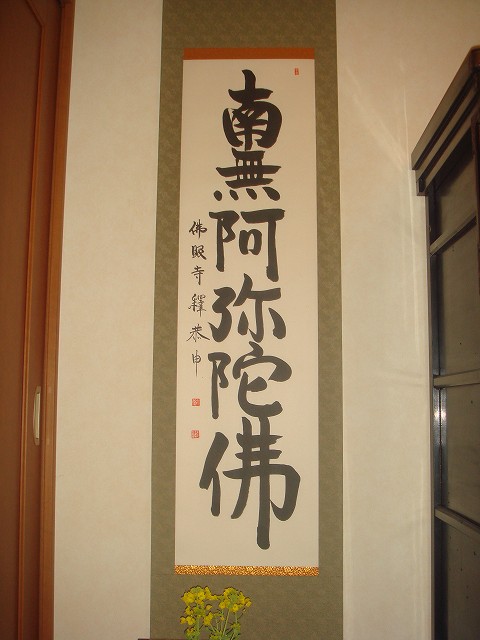 南無阿弥陀佛
佛照寺釋恭申